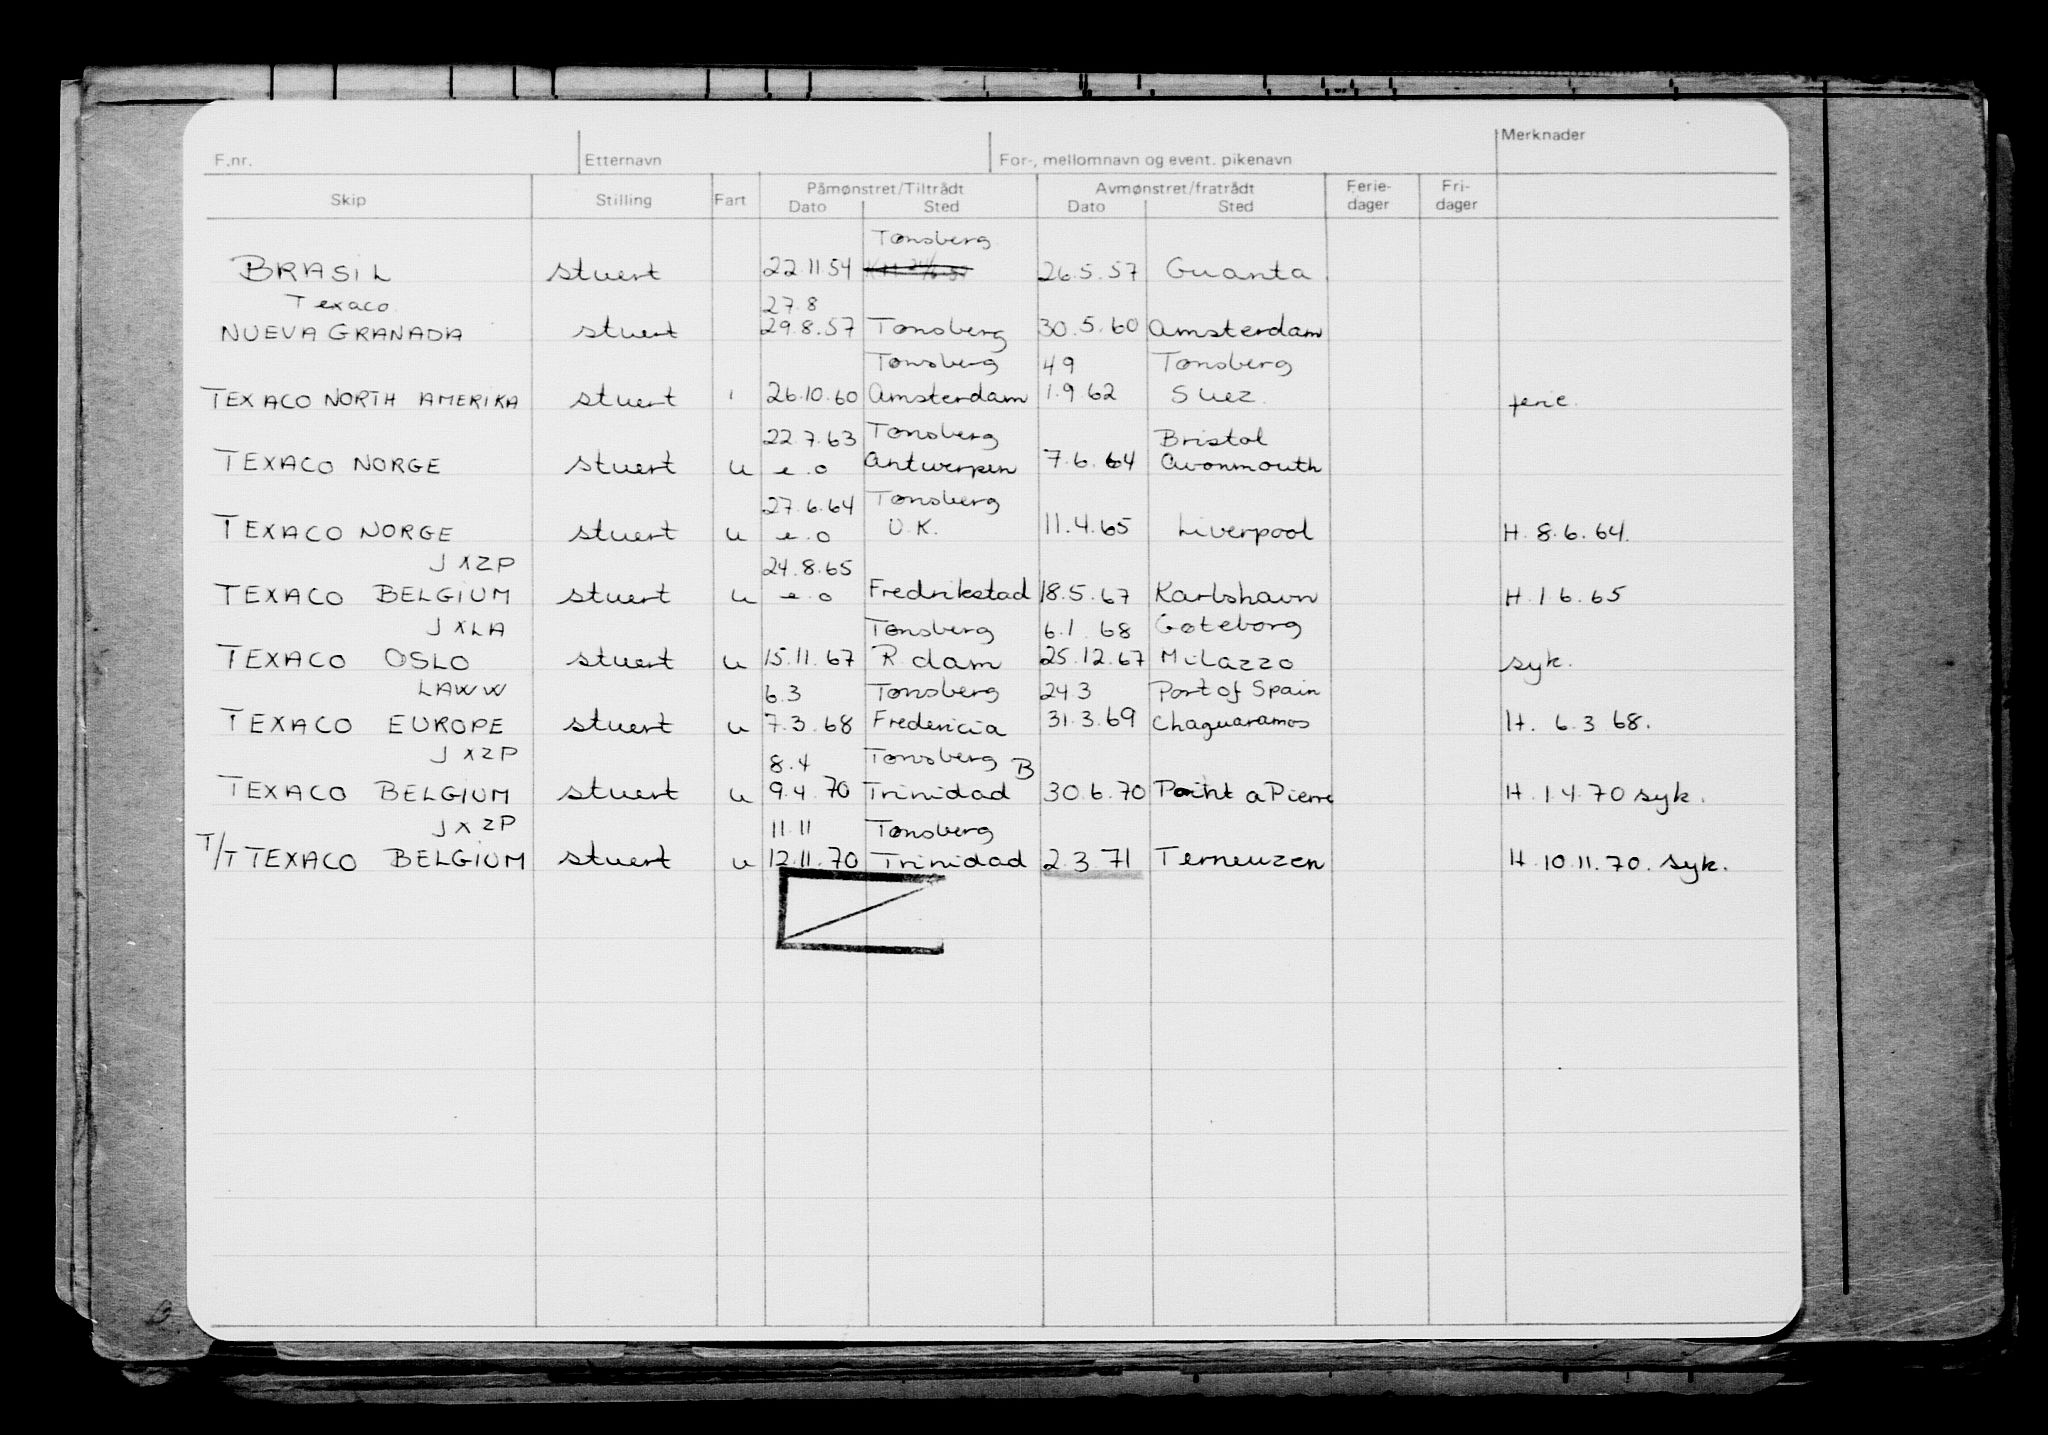 F.nr. Etternavn For-, mellomnavn og event. pikenavn Merknader
Skip Stilling Fart Påmønstret/Tiltrådt Dato Sted Avmønstret/fratrådt Dato Sted Ferie-dager Fri-dager
Tønsberg
BRASIL stuert 22.11.54 26.5.57 Guanta
Texaco 27.8
NUEVA GRANADA stuert 29.8.57 Tønsberg 30.5.60 Amsterdam
Tønsberg 4 9 Tønsberg
TEXACO NORTH AMERIKA stuert 26.10.60 Amsterdam 1.9 62 Suez ferie.
22.7.63 Tønsberg Bristol
TEXACO NORGE stuert u e.o Antwerpen 7.6.64 Avonmouth
27.6.64 Tønsberg
TEXACO NORGE stuert u e.o U.K. 11.4.65 Liverpool H. 8.6.64.
JXZP 24.8.65
TEXACO BELGIUM stuert u e.o Fredrikstad 18.5.67 Karlshavn H. 1 6.65
JXLA Tønsberg 6.1 68 Gøteborg
TEXACO OSLO stuert u 15.11.67 R.dam 25.12.67 Milazzo syk.
LAWW 6.3 Tønsberg 24.3 Port of Spain
TEXACO EUROPE stuert u 7.3.68 Fredericia 31.3.69 Chaguaramos H. 6.3 68.
JXZP 8.4 Tønsberg B
TEXACO BELGIUM stuert u 9.4.70 Trinidad 30.6.70 Point a Pierre H. 1 4.70 syk.
JXZP 11.11 Tønsberg
T/T TEXACO BELGIUM stuert u 12.11.70 Trinidad 2.3.71 Terneuzen H. 10.11.70. syk.